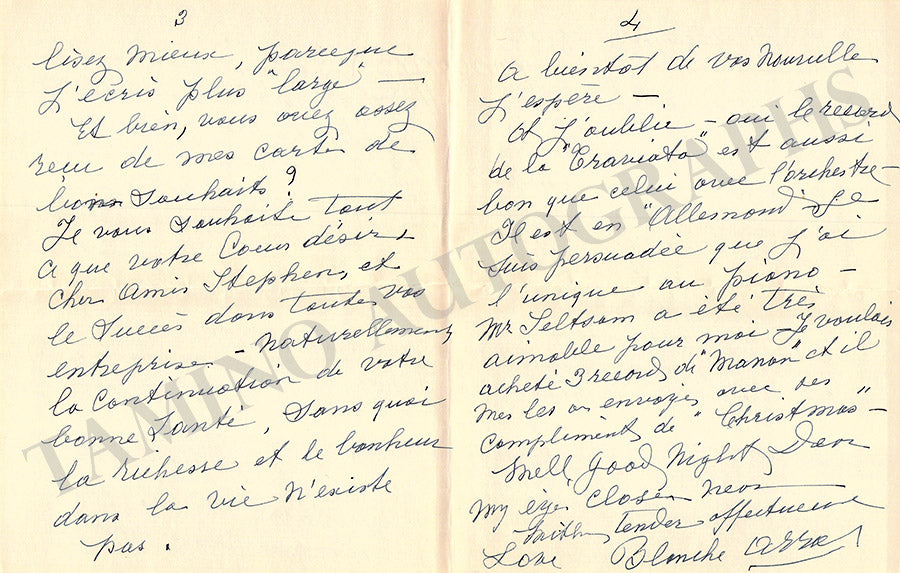 3
lisez mieux, parceque
j'écris plus "large" —
Et bien, vous avez assez
recu de mes carte de
bons souhaits?
Je vous souhaite tout
a que votre Coeur désir,
Cher Amis Stephen, et
le Succès dans toutes vos
entreprise — naturellement
la Continuation de votre
bonne Santé, sans quoi
la richesse et le bonheur
dans la vie n'existe
pas.
4
A bientôt de vos nouvelle
j'espère —
Et j'oublie — oui le record
de la "Traviata" est aussi
bon que celui avec l'orchestre —
Il est en "Allemand" — Je
suis persuadée que j'ai
l'unique au piano —
Mr Seltsam a été très
aimable pour moi — Je voulais
acheté 3 records de "Manon" et il
mes les as envoyés avec ses
compliments de "Christmas" —
Well, Good Night, Dear
my eyes closes near
With tender affectueuse
Love Blanche Arral
TAMINO AUTOGRAPHS